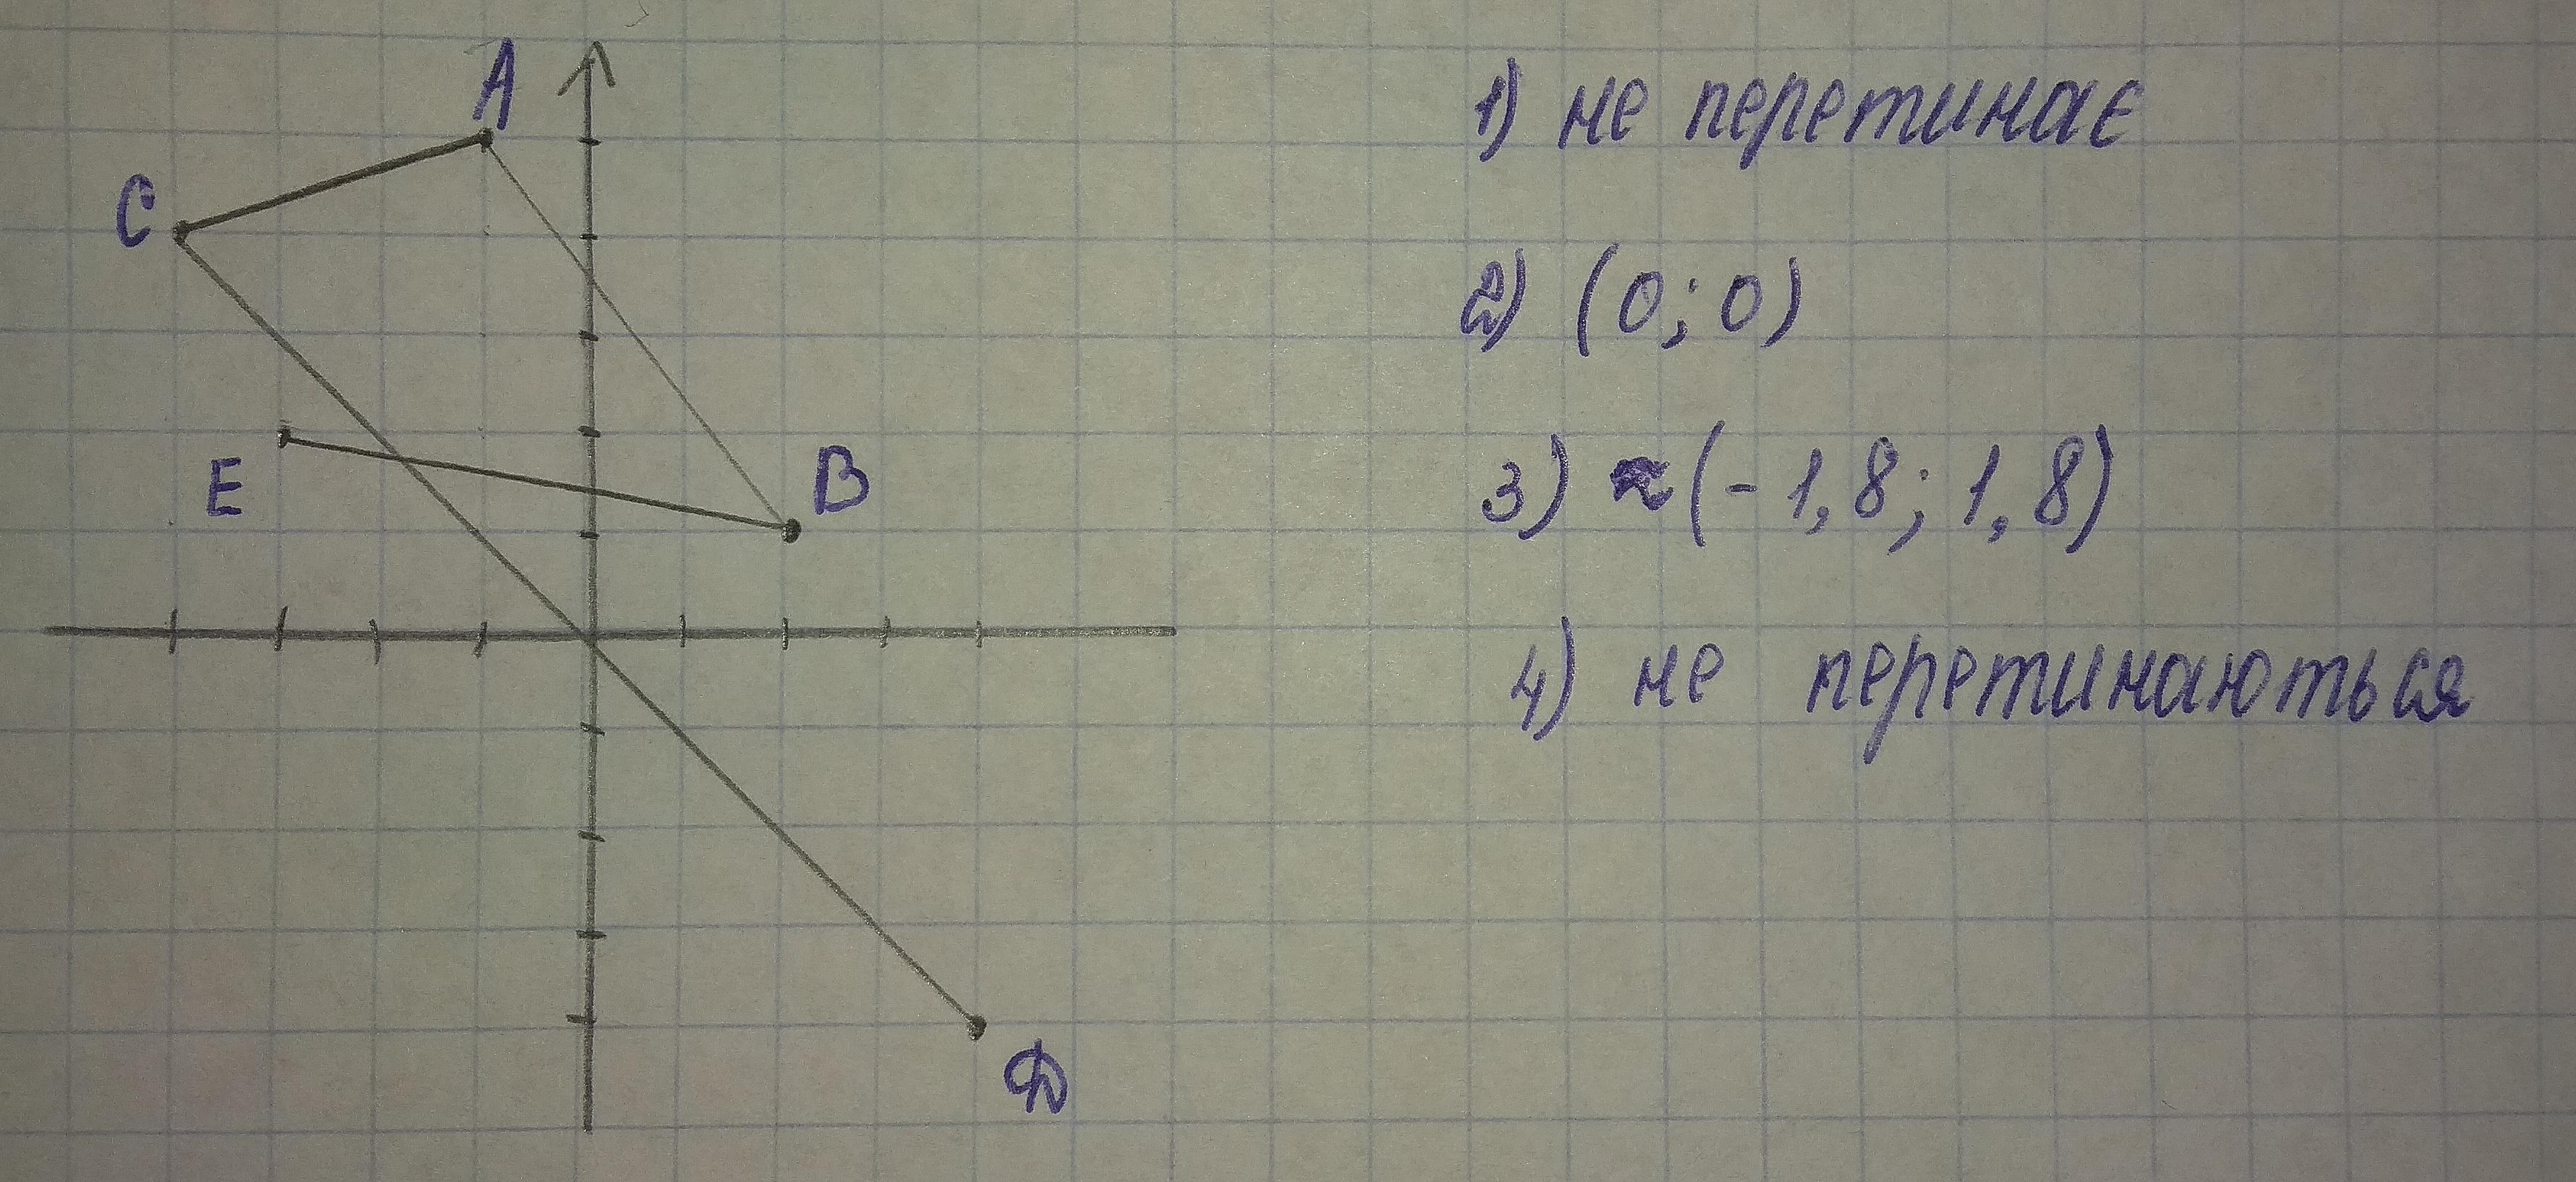 A
C
E
B
D
1) не перетинає
2) (0; 0)
3) ≈(-1,8; 1,8)
4) не перетинаються